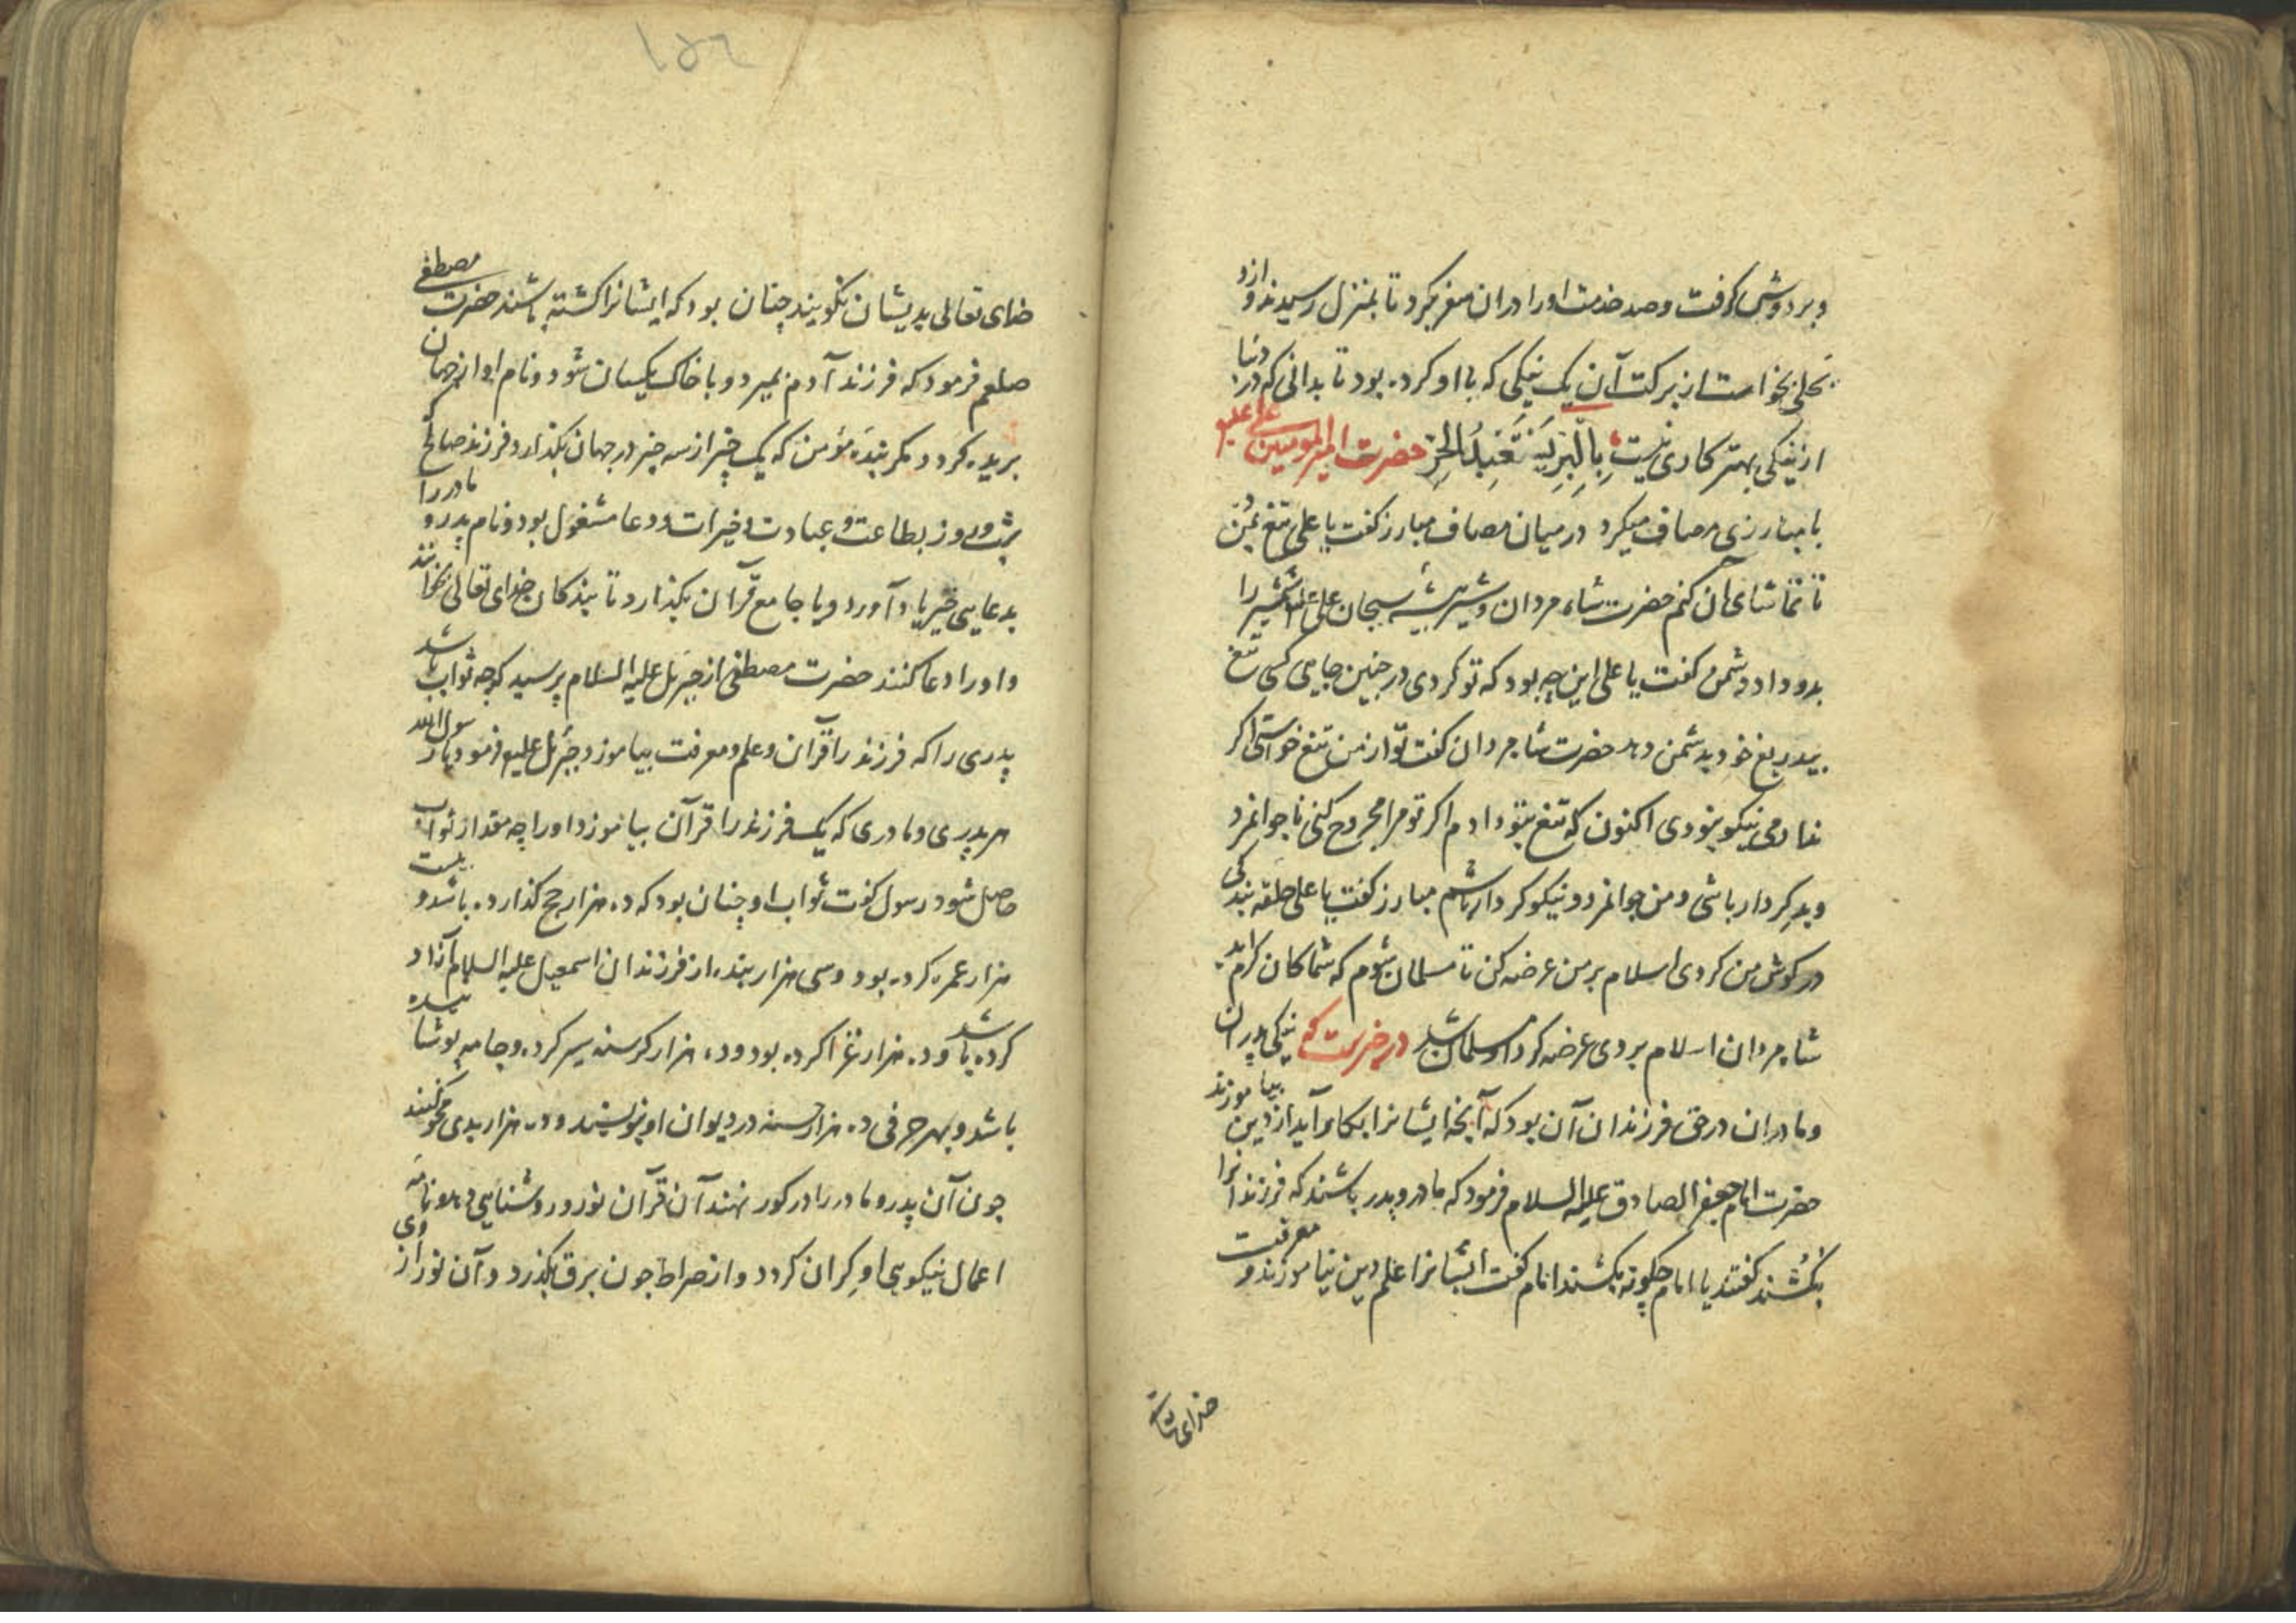 و بر دوش گرفت و صد خدمت او را در آن سفر بکرد تا بمنزل رسیدند و ازو
بحلی بخواست از برکت آن یک نیکی که با او کرده بود تا بدانی که در دنیا
از نیکی بهتر کاری نیست بِالْبِرِّ یُسْتَعْبَدُ الحُرّ حضرت امیر المومنین علی علیه
با مبارزی مصاف میکرد در میان مصاف مبارز گفت یا علی تیغ بمن ده
تا تماشای آن کنم حضرت شاه مردان و شیر بیشه سبحان علی شمشیر را
بدو داد دشمن گفت یا علی این چه بود که تو کردی در چنین جایی کسی تیغ
بیدریغ خود بدشمن دهد حضرت شاه مردان گفت تو از من تیغ خواستی اگر
ندادمی نیکو نبودی اکنون که تیغ بتو دادم اگر تو مرا مجروح کنی ناجوانمرد
و بدکردار باشی و من جوانمرد و نیکوکردار باشم مبارز گفت یا علی حلقه بندگی
در گوش من کردی اسلام بر من عرضه کن تا مسلمان شوم که شما کان کرم اید
شاه مردان اسلام بر وی عرضه کرد او مسلمان شد در خبرست که نیکی پدران
و مادران در حق فرزندان آن بود که آنچه ایشانرا بکار آید از دین بیاموزند
حضرت امام جعفر الصادق علیه السلام فرمود که مادر و پدر باشند که فرزندانرا
بکُشند گفتند یا امام چگونه بکشند امام گفت ایشانرا علم دین نیاموزند و معرفت
خدای تعالی
۱۵۶
خدای تعالی بدیشان نگویند چنان بود که ایشانرا کشته باشند حضرت مصطفی
صلعم فرمود که فرزند آدم بمیرد و با خاک یکسان شود و نام او از جهان
بریده گردد مگر بندهٔ مؤمن که یک چیز از سه چیز در جهان بگذارد فرزند صالح که
شب و روز بطاعت و عبادت و خیرات و دعا مشغول بود و نام پدر و مادر را
بدعایی خیر یاد آورد و یا جامع قرآن بگذارد تا بندگان خدای تعالی بخوانند
و او را دعا کنند حضرت مصطفی از جبرئل علیه السلام پرسید که چه ثواب باشد
پدری را که فرزند را قرآن و علم و معرفت بیاموزد جبرئل علیه فرمود یا رسول الله
هر پدری و مادری که یک فرزند را قرآن بیاموزد او را چه مقدار ثواب
حاصل شود رسول گفت ثواب او چنان بود که ده هزار حج گذارده باشد و بیست
هزار عمره کرده بود و سی هزار بنده از فرزندان اسمعیل علیه السلام آزاد
کرده باشد و ده هزار غزا کرده بود و ده هزار گرسنه سیر کرده و جامه پوشانیده
باشد و بهر حرفی ده هزار حسنه در دیوان او بنویسند و ده هزار بدی محو کنند
چون آن پدر و مادر را در گور نهند آن قرآن نور و روشنایی دهد و نامه
اعمال نیکویی او گران گردد و از صراط چون برق بگذرد و آن نور از وی